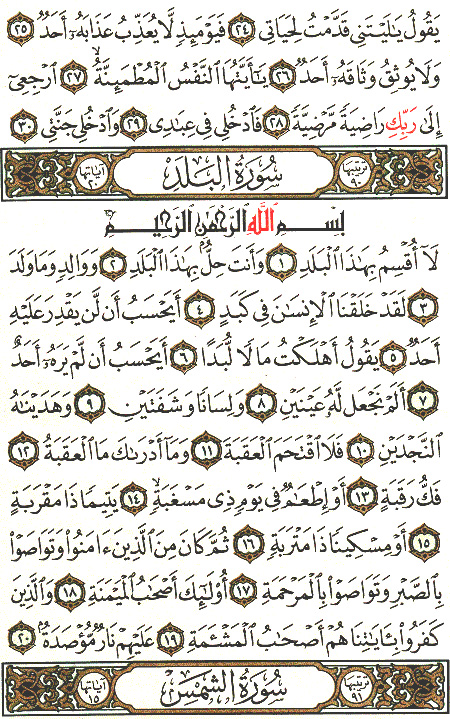 يَقُولُ يَٰلَيْتَنِى قَدَّمْتُ لِحَيَاتِى ٢٤ فَيَوْمَئِذٍ لَّا يُعَذِّبُ عَذَابَهُۥٓ أَحَدٌ ٢٥
وَلَا يُوثِقُ وَثَاقَهُۥٓ أَحَدٌ ٢٦ يَٰٓأَيَّتُهَا ٱلنَّفْسُ ٱلْمُطْمَئِنَّةُ ٢٧ ٱرْجِعِىٓ
إِلَىٰ رَبِّكِ رَاضِيَةً مَّرْضِيَّةً ٢٨ فَٱدْخُلِى فِى عِبَٰدِى ٢٩ وَٱدْخُلِى جَنَّتِى ٣٠
ترتيبها ٩٠ سُورَةُ البَلَدِ آياتها ٢٠
بِسْمِ ٱللَّهِ ٱلرَّحْمَٰنِ ٱلرَّحِيمِ
لَآ أُقْسِمُ بِهَٰذَا ٱلْبَلَدِ ١ وَأَنتَ حِلٌّۢ بِهَٰذَا ٱلْبَلَدِ ٢ وَوَالِدٍ وَمَا وَلَدَ
٣ لَقَدْ خَلَقْنَا ٱلْإِنسَٰنَ فِى كَبَدٍ ٤ أَيَحْسَبُ أَن لَّن يَقْدِرَ عَلَيْهِ
أَحَدٌ ٥ يَقُولُ أَهْلَكْتُ مَالًا لُّبَدًا ٦ أَيَحْسَبُ أَن لَّمْ يَرَهُۥٓ أَحَدٌ
٧ أَلَمْ نَجْعَل لَّهُۥ عَيْنَيْنِ ٨ وَلِسَانًا وَشَفَتَيْنِ ٩ وَهَدَيْنَٰهُ
ٱلنَّجْدَيْنِ ١٠ فَلَا ٱقْتَحَمَ ٱلْعَقَبَةَ ١١ وَمَآ أَدْرَىٰكَ مَا ٱلْعَقَبَةُ ١٢
فَكُّ رَقَبَةٍ ١٣ أَوْ إِطْعَٰمٌ فِى يَوْمٍ ذِى مَسْغَبَةٍ ١٤ يَتِيمًا ذَا مَقْرَبَةٍ
١٥ أَوْ مِسْكِينًا ذَا مَتْرَبَةٍ ١٦ ثُمَّ كَانَ مِنَ ٱلَّذِينَ ءَامَنُوا۟ وَتَوَاصَوْا۟
بِٱلصَّبْرِ وَتَوَاصَوْا۟ بِٱلْمَرْحَمَةِ ١٧ أُو۟لَٰٓئِكَ أَصْحَٰبُ ٱلْمَيْمَنَةِ ١٨ وَٱلَّذِينَ
كَفَرُوا۟ بِـَٔايَٰتِنَا هُمْ أَصْحَٰبُ ٱلْمَشْـَٔمَةِ ١٩ عَلَيْهِمْ نَارٌ مُّؤْصَدَةٌۢ ٢٠
ترتيبها ٩١ سُورَةُ الشَّمْسِ آياتها ١٥